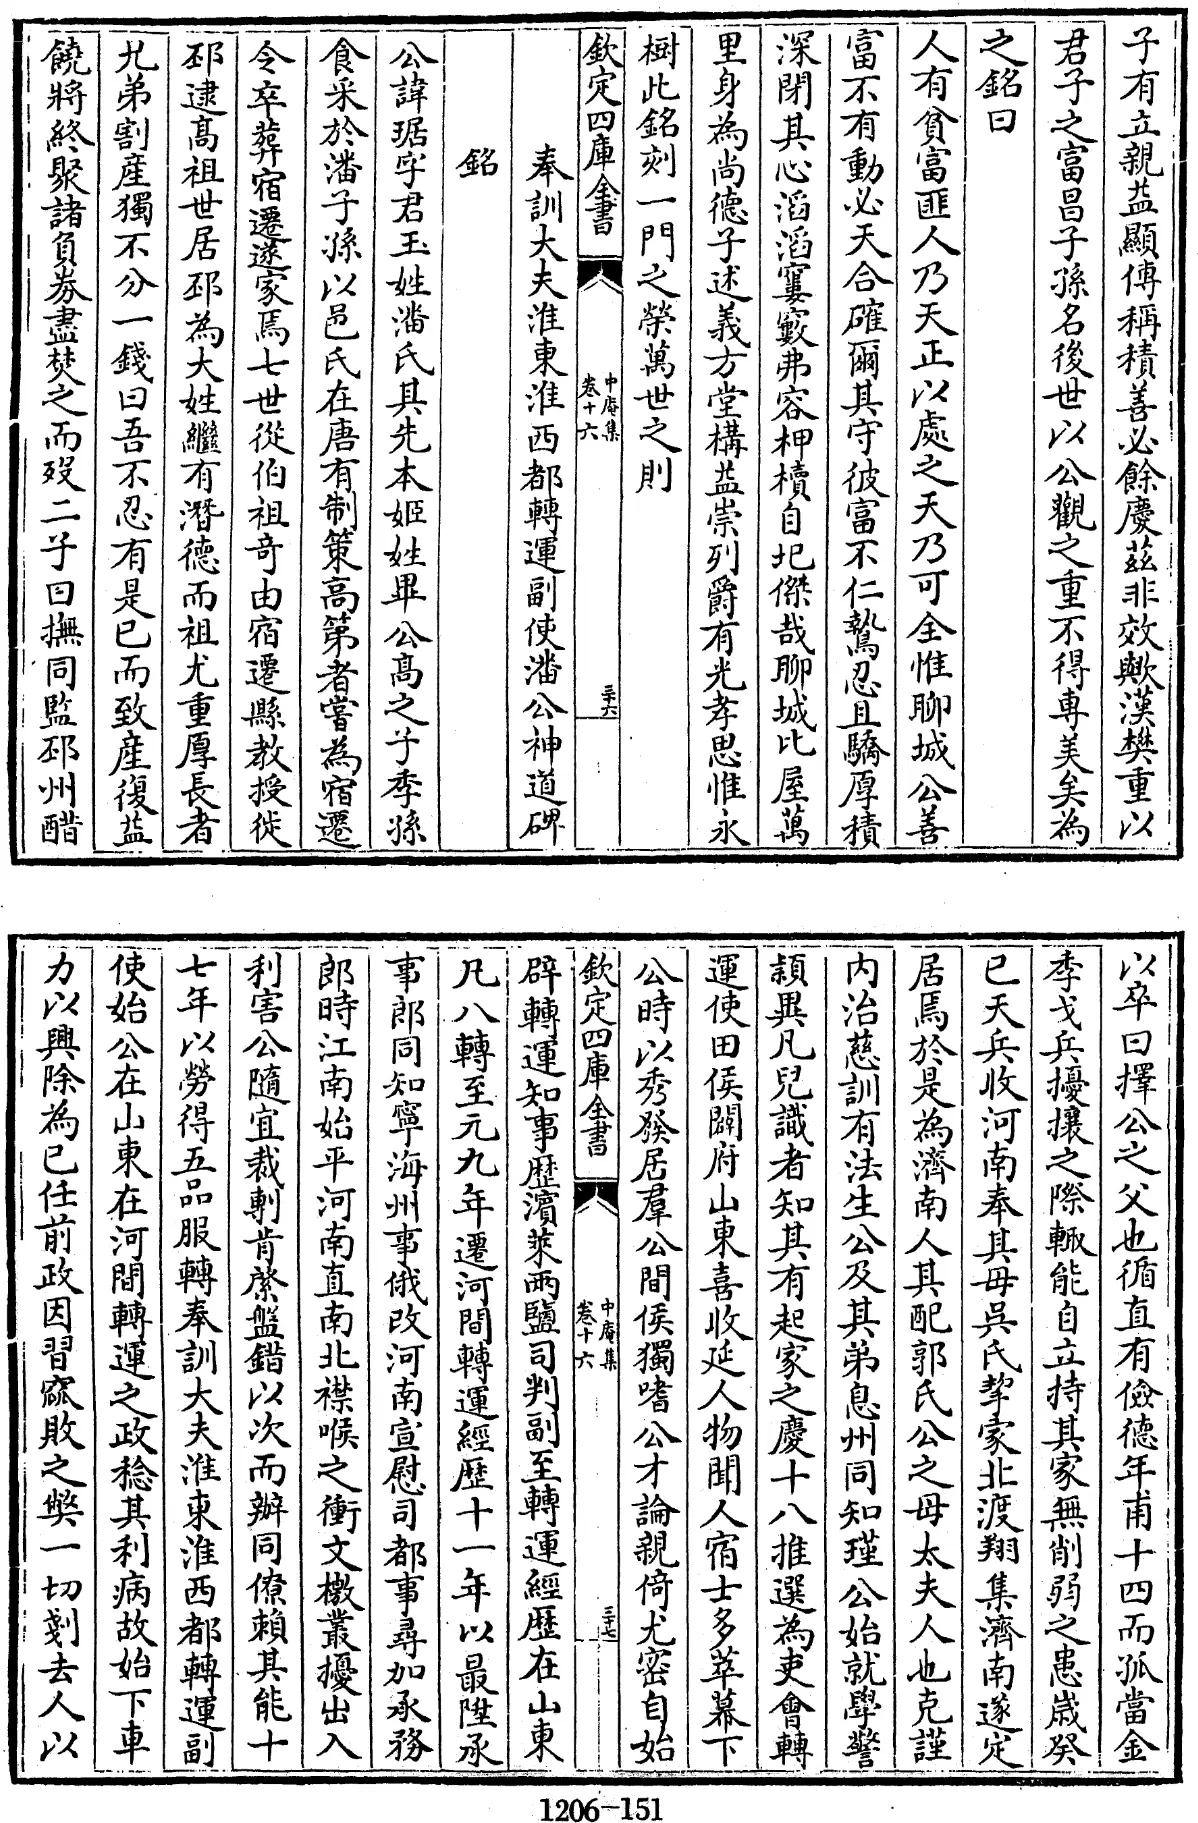 子有立親益顯傅稱積善必餘慶茲非效歟漢樊重以
君子之富昌子孫名後世以公觀之重不得專美矣為
之銘曰
人有貧富匪人乃天正以處之天乃可全惟聊城公善
富不有動必天合確爾其守彼富不仁鷙忍且驕厚積
深閉其心滔滔窶藪弗容柙櫝自圯傑哉聊城比屋萬
里身為尚德子述義方堂構益崇列爵有光孝思惟永
樹此銘刻一門之榮萬世之則
欽定四庫全書
中庵集
卷十六
三十六
奉訓大夫淮東淮西都轉運副使潘公神道碑
銘
公諱琚字君玉姓潘氏其先本姬姓畢公高之子季孫
食采於潘子孫以邑氏在唐有制策高第者嘗為宿遷
令卒葬宿遷遂家焉七世從伯祖奇由宿遷縣教授徙
邳逮高祖世居邳為大姓繼有潛德而祖尤重厚長者
凡弟割產獨不分一錢曰吾不忍有是已而致產復益
饒將終聚諸負劵盡焚之而歿二子曰撫同監邳州醋
以卒曰擇公之父也循直有儉德年甫十四而孤當金
季戈兵擾攘之際輙能自立持其家無削弱之患歲癸
巳天兵收河南奉其母吳氏挈家北渡翔集濟南遂定
居焉於是為濟南人其配郭氏公之母太夫人也克謹
内治慈訓有法生公及其弟息州同知瑾公始就學警
頴異凡兒識者知其有起家之慶十八推選為吏會轉
運使田侯闢府山東喜收延人物聞人宿士多萃幕下
公時以秀發居羣公間侯獨嗜公才論親倚尤密自始
欽定四庫全書
中庵集
卷十六
三十七
辟轉運知事歴濱萊兩鹽司判副至轉運經歴在山東
凡八轉至元九年遷河間轉運經歴十一年以最陞承
事郎同知寧海州事俄改河南宣慰司都事尋加承務
郎時江南始平河南直南北襟喉之衝文檄叢擾出入
利害公隨宜裁剸肯綮盤錯以次而辦同僚賴其能十
七年以勞得五品服轉奉訓大夫淮東淮西都轉運副
使始公在山東在河間轉運之政稔其利病故始下車
力以興除為已任前政因習窳敗之弊一切剗去人以
1206-151